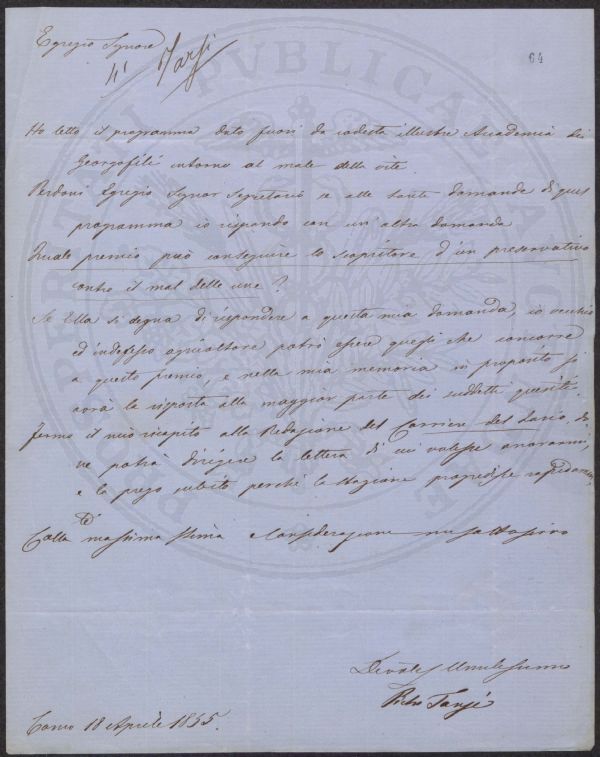 Egregio Signore
64
Ho letto il programma dato fuori da codesta illustre Accademia dei
Georgofili intorno al male della vite.
Perdoni Egregio Signor Segretario se alle tante domande di quel
programma io rispondo con un'altra domanda
Quale premio può conseguire lo scopritore d'un preservativo
contro il mal delle uve?
Se Ella si degna di rispondere a questa mia domanda, io vecchio
ed indefesso agricoltore potrò essere quegli che concorre
a questo premio, e nella mia memoria in proposito si
avrà la risposta alla maggior parte dei suddetti quesiti.
Fermo il mio ricapito alla Redazione del Corriere del Lario, do-
ve potrà dirigere la lettera di cui volesse onorarmi,
e la prego subito perchè la stagione progredisce rapidamen
te
Colla massima stima e considerazione mi sottoscrivo
Umilissimo
Pietro
Como 18 Aprile 1855.
PUBLICA